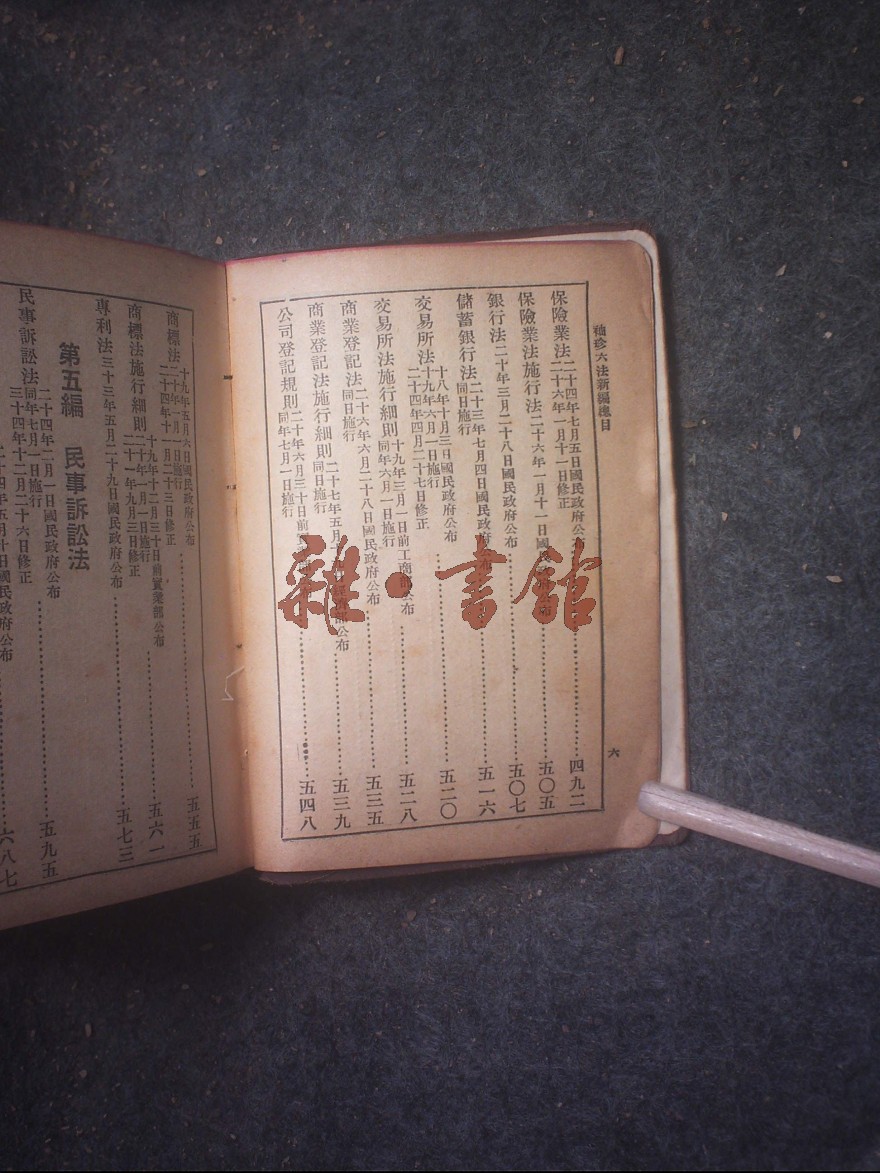 袖珍六法新編總目
六
保險業法二十四年七月五日國民政府公布
二十六年一月十一日修正
四九二
保險業法施行法二十六年一月十一日國民政府公布
五〇五
銀行法二十年三月二十八日國民政府公布
五〇七
儲蓄銀行法二十三年七月四日國民政府公布
同日施行
五一六
交易所法十八年十月三日國民政府公布
十九年六月一日施行
二十四年四月二十七日修正
五二〇
交易所法施行細則十九年三月一日前工商部公布
同年六月一日施行
五二八
商業登記法二十六年六月二十八日國民政府公布
同日施行
五三五
商業登記法施行細則二十七年五月十九日經濟部公布
同日施行
五三九
公司登記規則二十年六月三十日前
同年七月一日施行
五四八
雜書館
商標法十九年五月六日國民政府公布
二十年一月一日施行
二十四年十一月二十三日修正
五五五
商標法施行細則十九年十二月三十日前實業部公布
二十年一月一日施行
二十一年九月三日修正
五六一
專利法三十三年五月二十九日國民政府公布
五七三
第五編 民事訴訟法
民事訴訟法二十四年二月一日國民政府公布
同年七月一日施行
三十四年十二月二十六日修正
五九五
二十四年五月十日國民政府公布
六八七